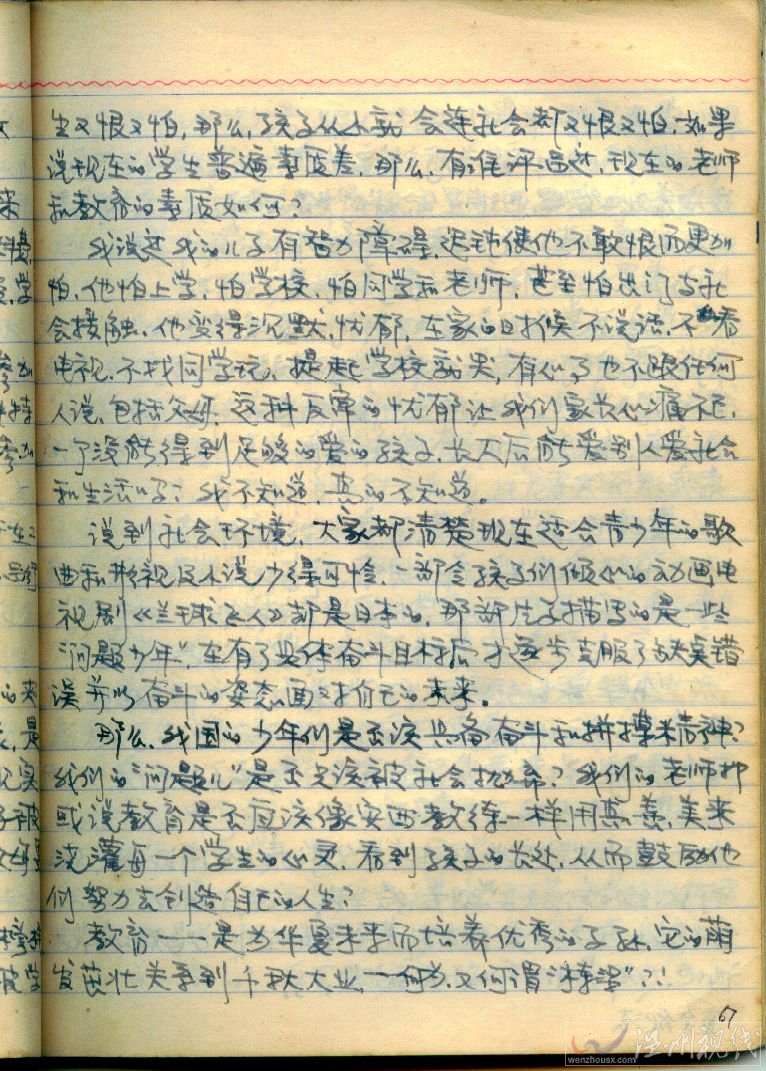 生又恨又怕,那么,孩子从小就会连社会都又恨又怕,如果
说现在的学生普遍素质差,那么,有谁评品过,现在的老师
和教育的素质如何?
我说过我的儿子有智力障碍,迟钝使他不敢恨而更加
怕,他怕上学,怕学校,怕同学和老师,甚至怕出门与社
会接触。他变得沉默,忧郁,在家的时候不说话,不看
电视,不找同学玩,提起学校就哭,有心事也不跟任何
人说,包括父母。这种反常的忧郁让我们家长心痛不已,
一个没能得到足够的爱的孩子,长大后能爱别人爱社会
和生活吗?我不知道,真的不知道。
说到社会环境,大家都清楚现在适合青少年的歌
曲和影视及小说少得可怜,一部令孩子们倾心的动画电
视剧《兰球飞人》却是日本的,那部片子描写的是一些
"问题少年",在有了具体奋斗目标后才逐步克服了缺点错
误并以奋斗的姿态面对自己的未来。
那么,我国的少年们是否该具备奋斗和拼搏精神?
我们的"问题儿"是否应该被社会抛弃?我们的老师抑
或说教育是否应该像安西教练一样用真、善、美来
浇灌每一个学生的心灵,看到孩子的长处,从而鼓励他
们努力去创造自己的人生?
教育——是为华夏未来而培养优秀的子孙,它的萌
发茁壮关系到千秋大业,一何为,又何谓"?!
67
温州视线
wenzhousx.com